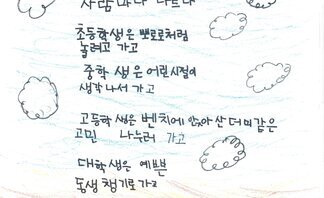 사람마다 다르다
초등학생은 뽀로로처럼
놀려고 가고
중학생은 어린시절이
생각나서 가고
고등학생은 벤치에 앉아 산더미같은
고민 나누러 가고
대학생은 예쁜
동생 챙기로 가고